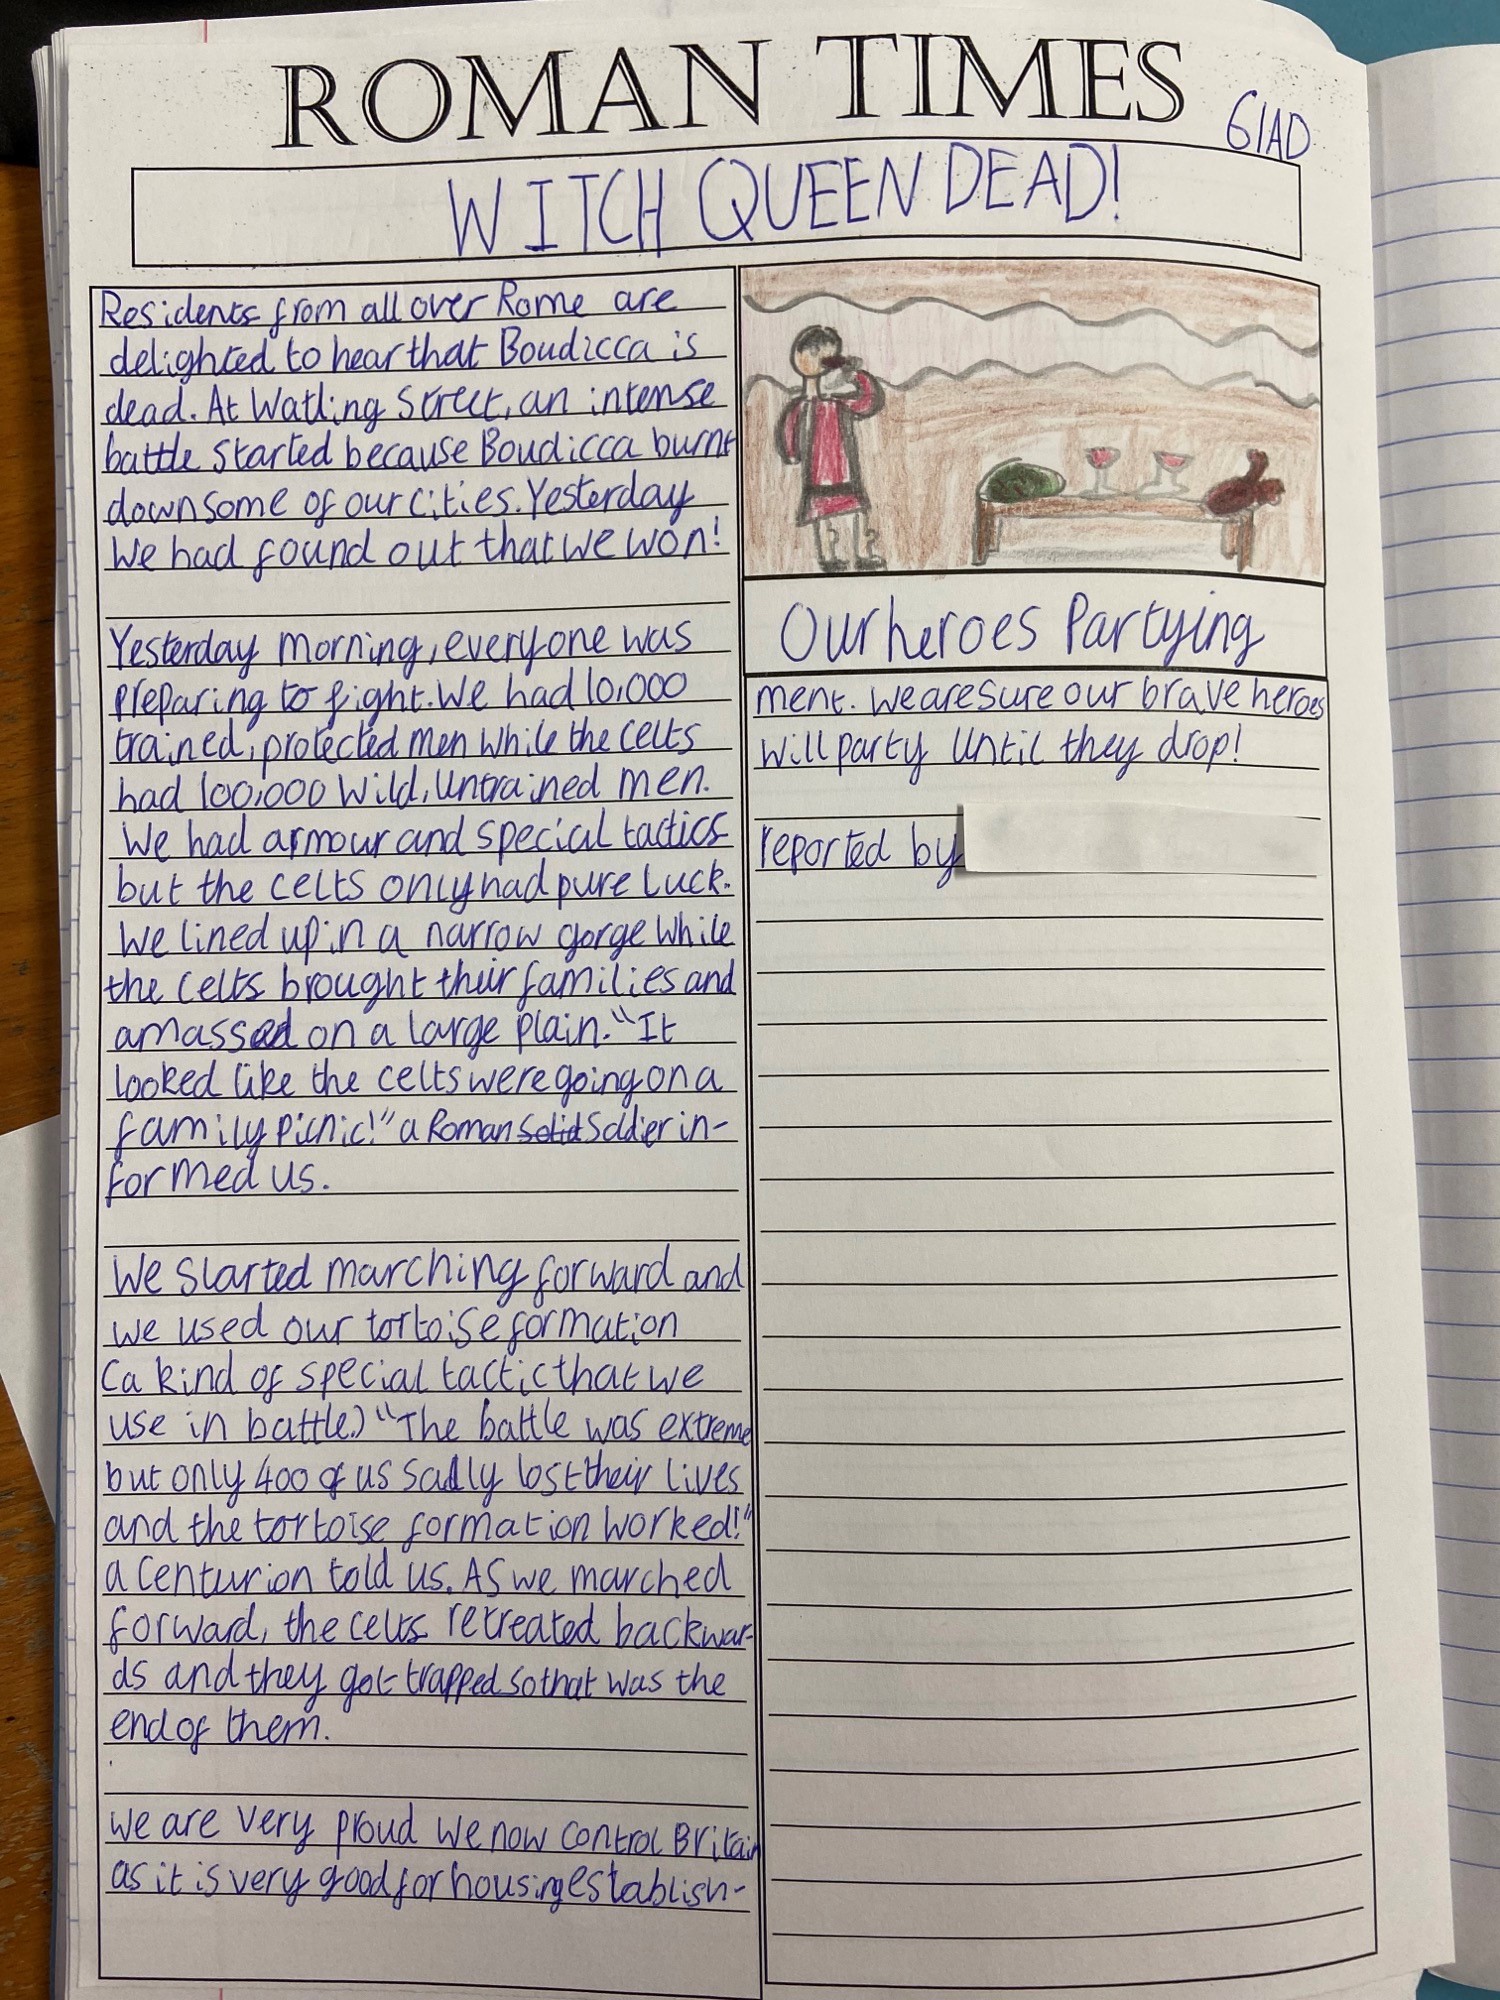 ROMAN TIMES
61AD
WITCH QUEEN DEAD!
Residents from all over Rome are
delighted to hear that Boudicca is
dead. At Watling Street, an intense
battle started because Boudicca burnt
down some of our cities. Yesterday
We had found out that we won!
Yesterday morning, everyone was
preparing to fight. We had 10,000
trained, protected men while the celts
had 100,000 wild, untrained men.
We had armour and special tactics
but the celts only had pure luck.
We lined up in a narrow gorge while
the celts brought their families and
amassed on a large plain. "It
looked like the celts were going on a
family picnic!" a Roman Solid Soldier in-
formed us.
We started marching forward and
we used our tortoise formation
(a kind of special tactic that we
use in battle.) "The battle was extreme
but only 400 of us sadly lost their lives
and the tortoise formation worked!"
a Centurion told us. As we marched
forward, the celts retreated backwar-
ds and they got trapped so that was the
end of them.
We are very proud we now control Britain
as it is very good for housing establish-
Our heroes Partying
ment. We are sure our brave heroes
will party until they drop!
reported by